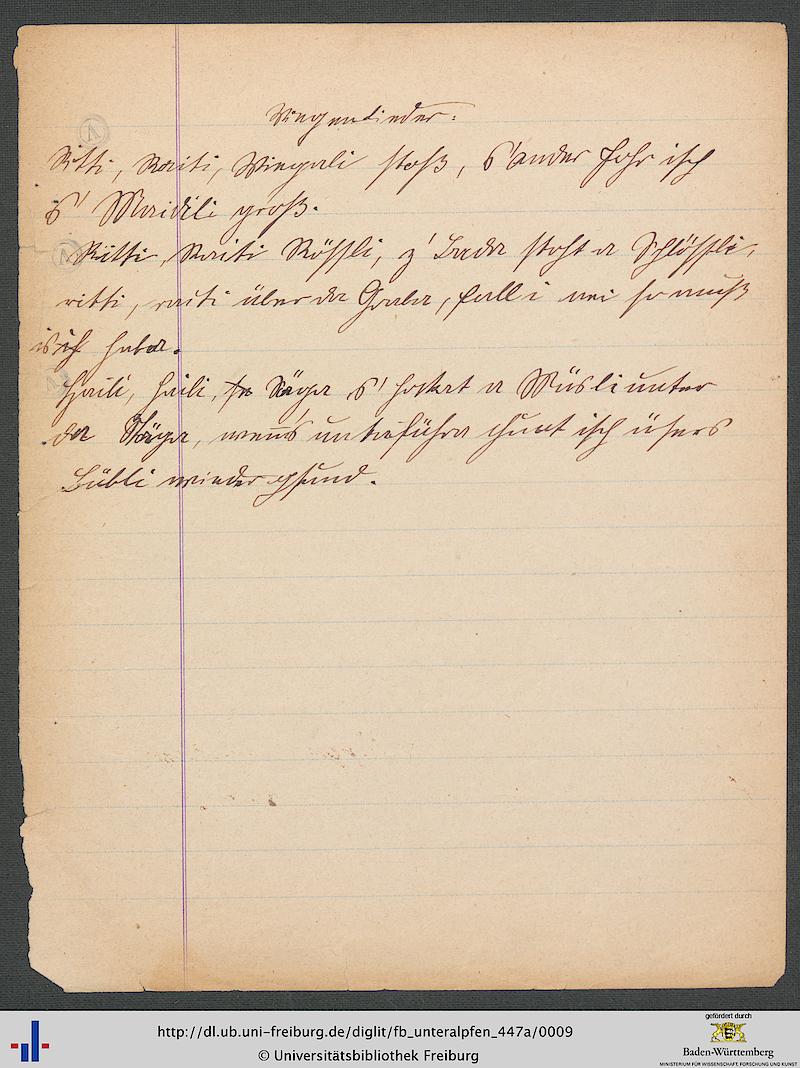 Wiegenlieder:
Ritti, Raiti, Wiegali stoß, s'ander Johr isch
s' Maidili groß.
Ritti, Raiti Rössli, z' Bada stoht a Schlössli,
ritti, raiti über da Graba, fall i nei so muß
i haba.
Haili, haili, Säga s' hocket a Müsli unter
da Stäga, wenns unterführa chunt isch üsers
Bübli wieder gsund.
http://dl.ub.uni-freiburg.de/diglit/fb_unteralpfen_447a/0009
© Universitätsbibliothek Freiburg
gefördert durch
Baden-Württemberg
MINISTERIUM FÜR WISSENSCHAFT, FORSCHUNG UND KUNST